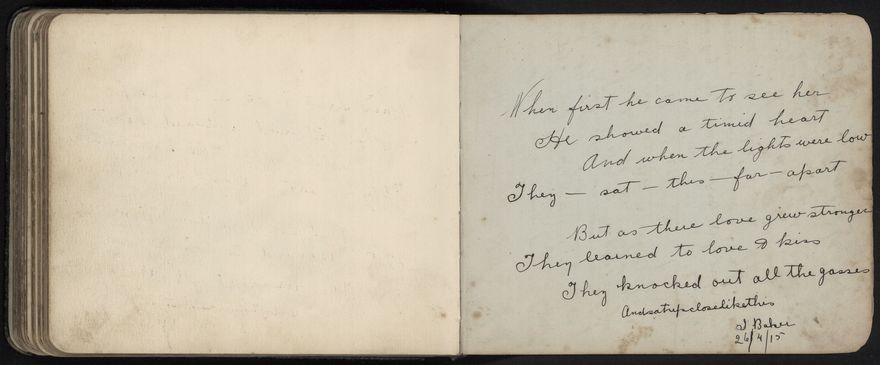 When first he came to see her
He showed a timid heart
And when the lights were low
They — sat — this — far — apart
But as there love grew stronger
They learned to love & kiss
They knocked out all the gasses
Andsatupcloselikethis
J Baker
26/4/15